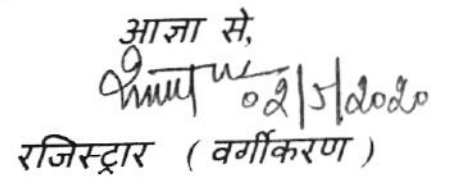 आज्ञा से,
02/5/2020
रजिस्ट्रार ( वर्गीकरण )